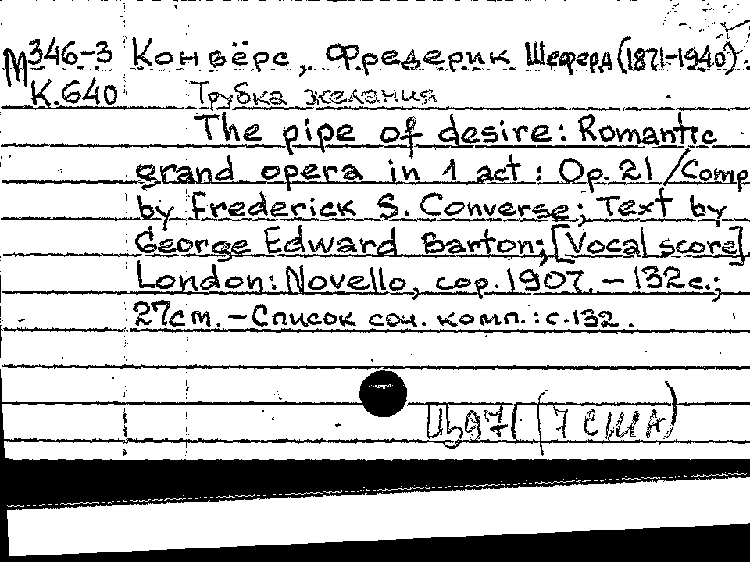 М 346-3 Конвёрс, Фредерик Шеферд (1871-1940).
К.640 Трубка желания
The pipe of desire: Romantic
grand opera in 1 act : Op. 21 / Comp
by Frederick S. Converse; Text by
George Edward Barton; [Vocal score].
London: Novello, cop. 1907. – 132 с.;
27 cm. – Список соч. комп.: с. 132.
(7 США)